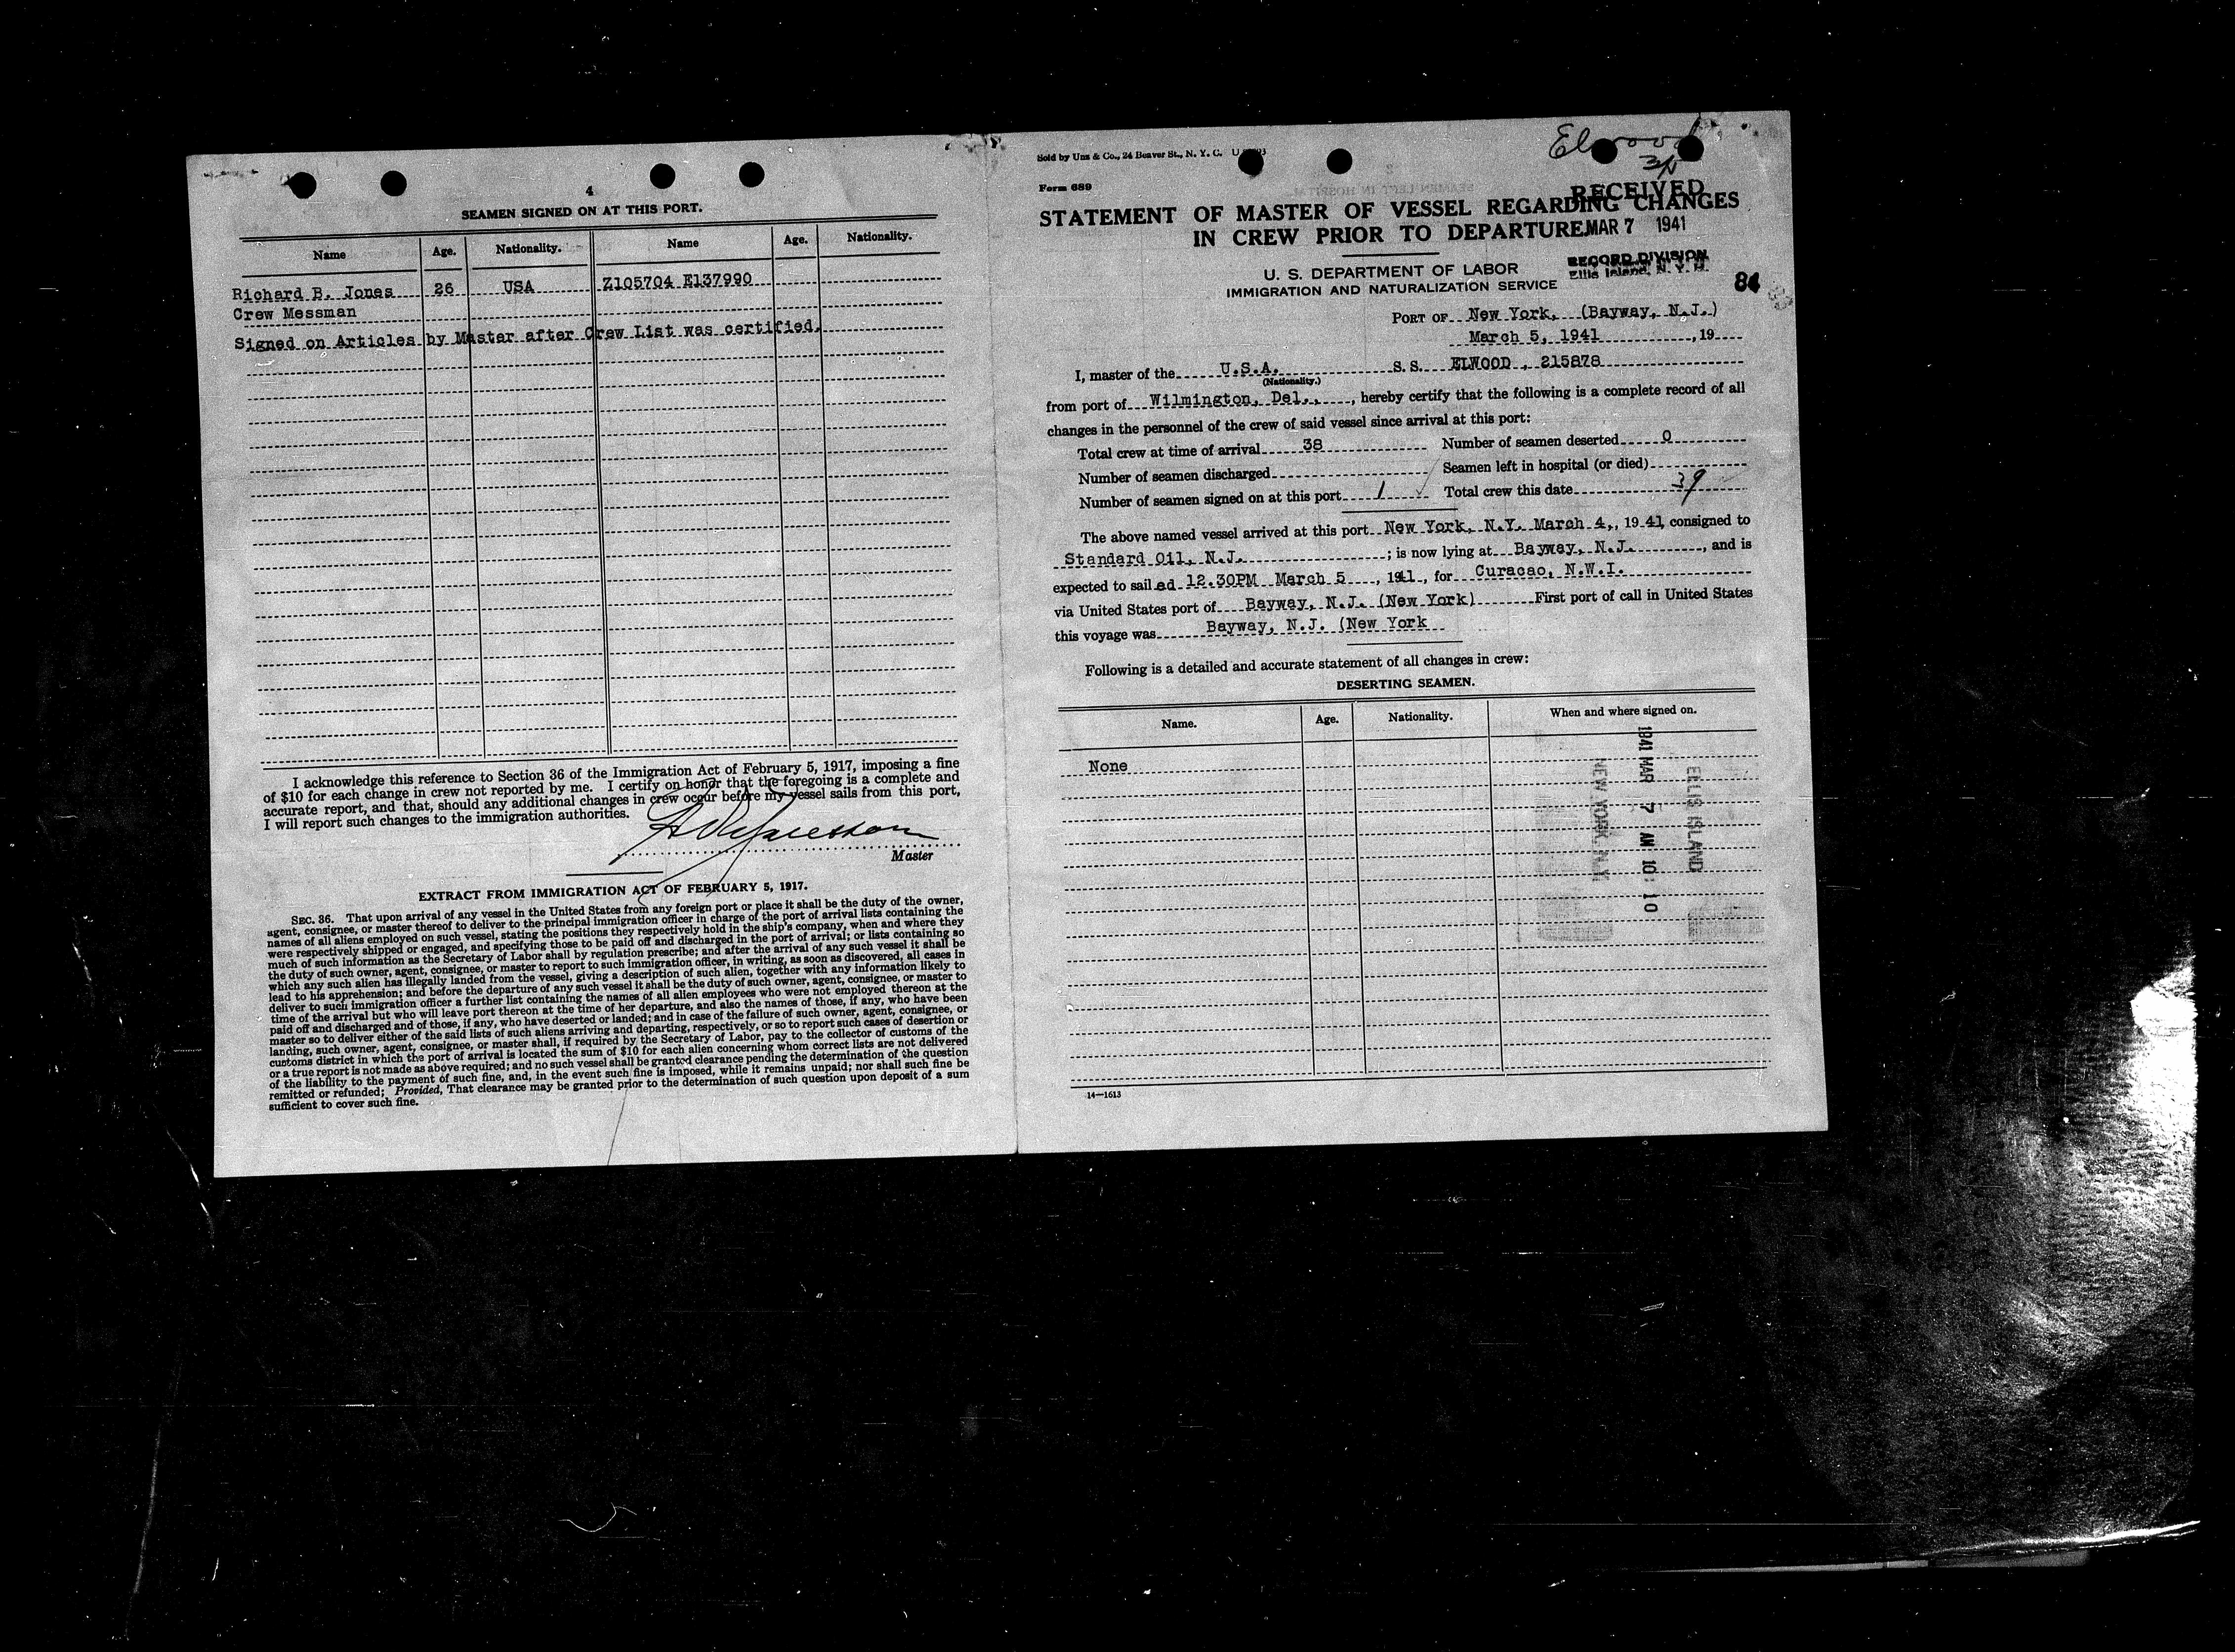 4
SEAMEN SIGNED ON AT THIS PORT.
Name Age. Nationality. Name Age. Nationality.
Richard B. Jones 26 USA Z105704 E137990
Crew Messman
Signed on Articles by Master after Crew List was certified.
I acknowledge this reference to Section 36 of the Immigration Act of February 5, 1917, imposing a fine
of $10 for each change in crew not reported by me. I certify on honor that the foregoing is a complete and
accurate report, and that, should any additional changes in crew occur before my vessel sails from this port,
I will report such changes to the immigration authorities.
Master
EXTRACT FROM IMMIGRATION ACT OF FEBRUARY 5, 1917.
SEC. 36. That upon arrival of any vessel in the United States from any foreign port or place it shall be the duty of the owner,
agent, consignee, or master thereof to deliver to the principal immigration officer in charge of the port of arrival lists containing the
names of all aliens employed on such vessel, stating the positions they respectively hold in the ship's company, when and where they
were respectively shipped or engaged, and specifying those to be paid off and discharged in the port of arrival; or lists containing so
much of such information as the Secretary of Labor shall by regulation prescribe; and after the arrival of any such vessel it shall be
the duty of such owner, agent, consignee, or master to report to such immigration officer, in writing, as soon as discovered, all cases in
which any such alien has illegally landed from the vessel, giving a description of such alien, together with any information likely to
lead to his apprehension; and before the departure of any such vessel it shall be the duty of such owner, agent, consignee, or master to
deliver to such immigration officer a further list containing the names of all alien employees who were not employed thereon at the
time of the arrival but who will leave port thereon at the time of her departure, and also the names of those, if any, who have been
paid off and discharged and of those, if any, who have deserted or landed; and in case of the failure of such owner, agent, consignee, or
master so to deliver either of the said lists of such aliens arriving and departing, respectively, or so to report such cases of desertion or
landing, such owner, agent, consignee, or master shall, if required by the Secretary of Labor, pay to the collector of customs of the
customs district in which the port of arrival is located the sum of $10 for each alien concerning whom correct lists are not delivered
or a true report is not made as above required; and no such vessel shall be granted clearance pending the determination of the question
of the liability to the payment of such fine, and, in the event such fine is imposed, while it remains unpaid; nor shall such fine be
remitted or refunded; Provided, That clearance may be granted prior to the determination of such question upon deposit of a sum
sufficient to cover such fine.
Elwood
Sold by Unz & Co., 24 Beaver St., N. Y. C.
Form 689
RECEIVED
STATEMENT OF MASTER OF VESSEL REGARDING CHANGES
IN CREW PRIOR TO DEPARTURE
MAR 7 1941
RECORD DIVISION
Ellis Island, N. Y. H.
U. S. DEPARTMENT OF LABOR
IMMIGRATION AND NATURALIZATION SERVICE
84
PORT OF New York, (Bayway, N.J.)
March 5, 1941, 19
I, master of the U.S.A. S. S. ELWOOD , 215878
(Nationality.)
from port of Wilmington, Del., , hereby certify that the following is a complete record of all
changes in the personnel of the crew of said vessel since arrival at this port:
Total crew at time of arrival 38 Number of seamen deserted 0
Number of seamen discharged Seamen left in hospital (or died)
Number of seamen signed on at this port 1 Total crew this date 39
The above named vessel arrived at this port New York, N.Y. March 4,, 1941, consigned to
Standard Oil, N.J. ; is now lying at Bayway, N.J. , and is
expected to sailed 12.30PM March 5 , 1941, for Curacao, N.W.I.
via United States port of Bayway, N.J. (New York) First port of call in United States
this voyage was Bayway, N.J. (New York
Following is a detailed and accurate statement of all changes in crew:
DESERTING SEAMEN.
Name. Age. Nationality. When and where signed on.
None
ELLIS ISLAND
1941 MAR 7 AM 10:10
NEW YORK, N.Y.
14—1613